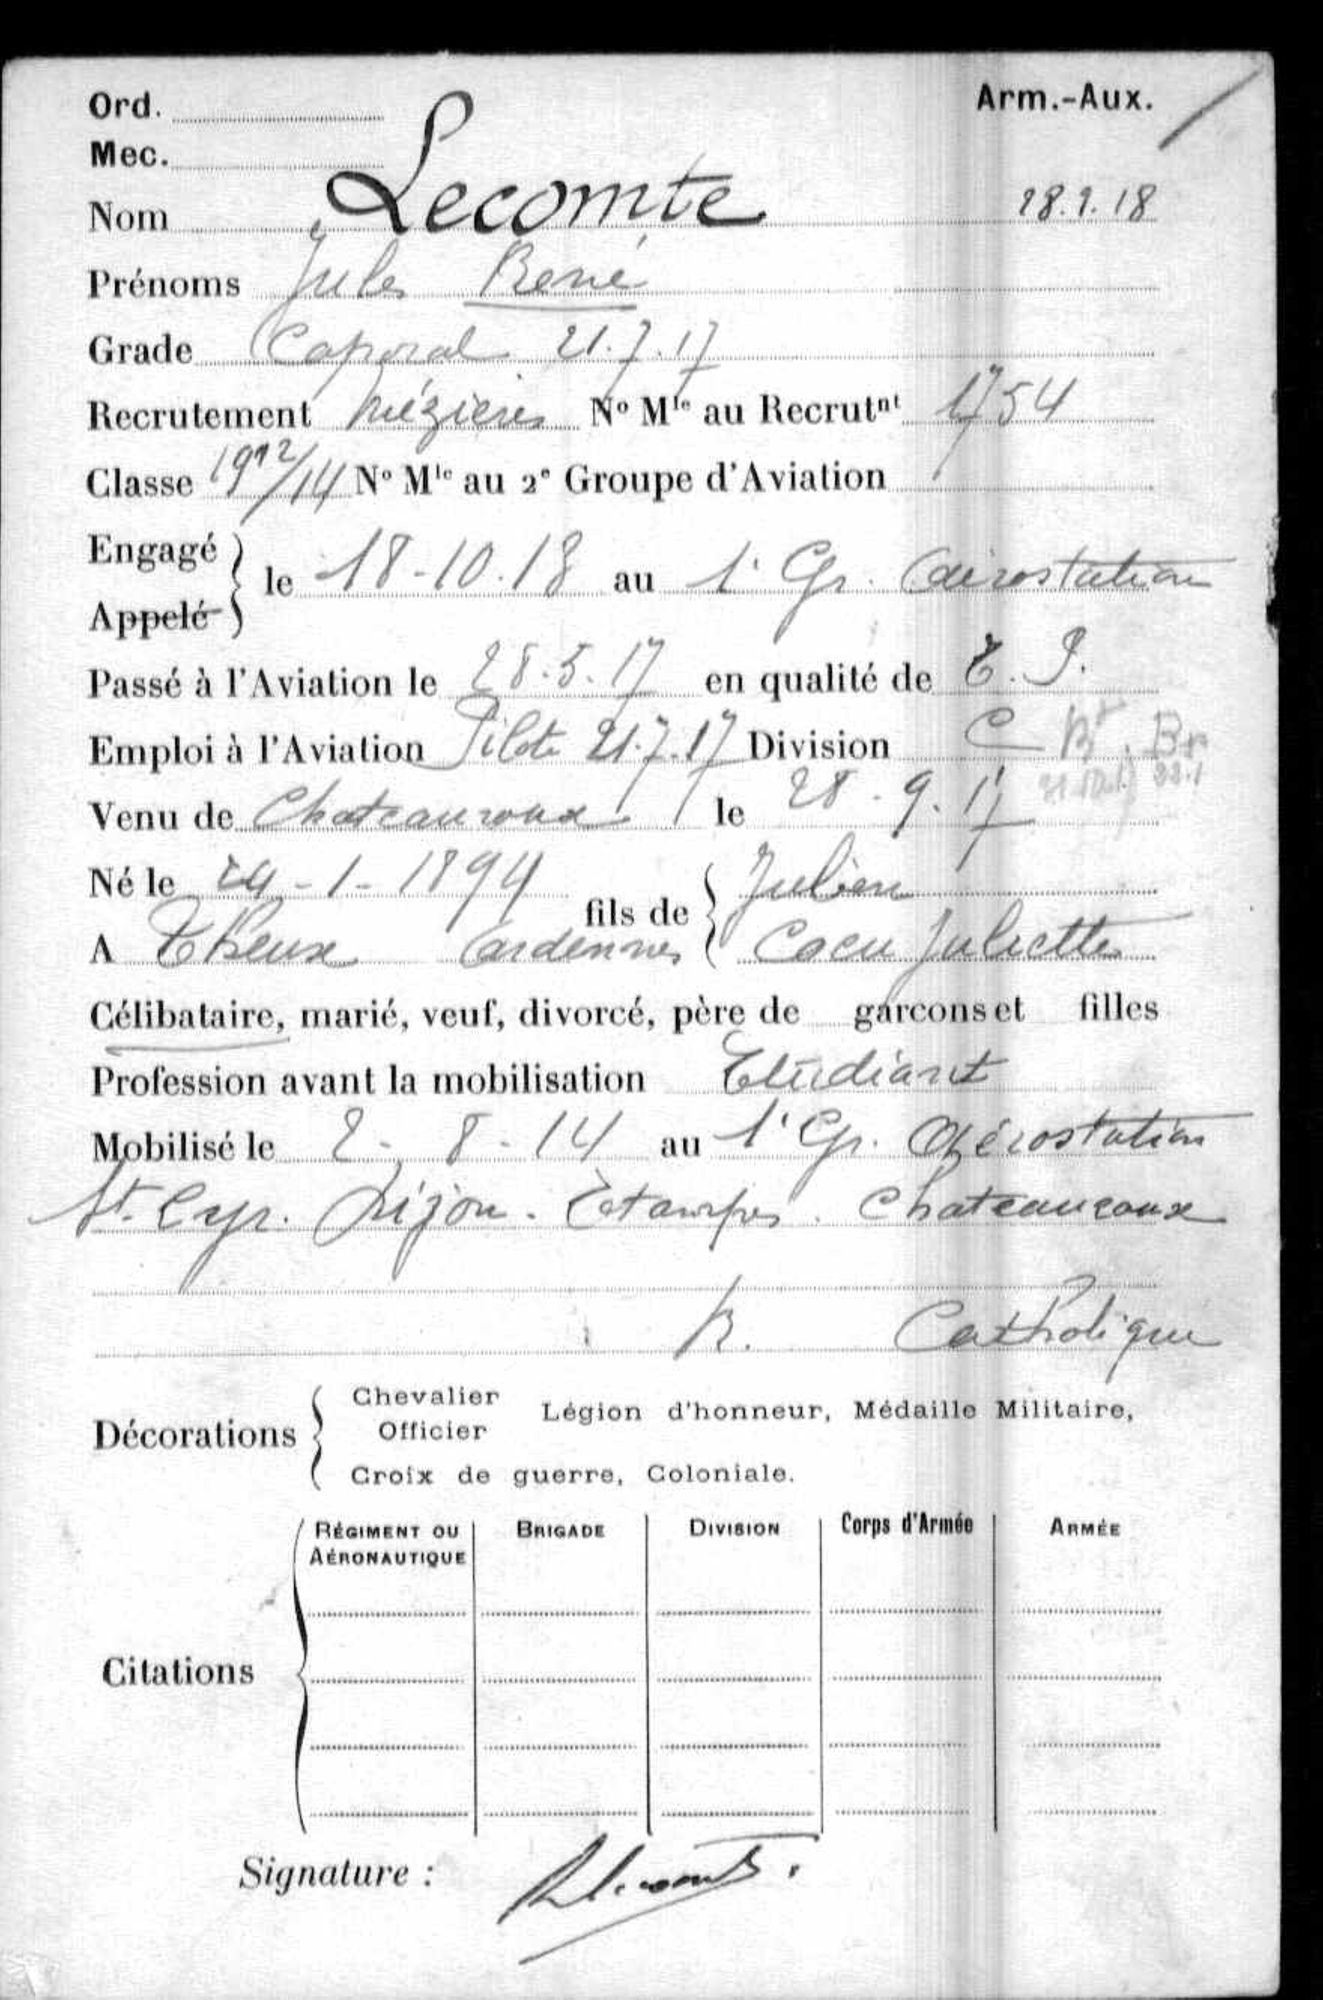 Ord. Arm.-Aux.
Mec.
Nom Lecomte 28.1.18
Prénoms Jules René
Grade Caporal 21.7.17
Recrutement Mézières No Mle au Recrutnt 1754
Classe 1912/14 No Mle au 2e Groupe d'Aviation
Engagé
Appelé
le 18-10.18 au 1r Gr. Aérostation
Passé à l'Aviation le 28.5.17 en qualité de E. P.
Emploi à l'Aviation Pilote 21.7.17 Division C Bt. Br
Venu de Chateauroux le 28.9.17
Né le 24-1-1894 fils de Julien
A Theux Ardennes Cocu Juliette
Célibataire, marié, veuf, divorcé, père de garcons et filles
Profession avant la mobilisation Etudiant
Mobilisé le 2-8-14 au 1r Gr. Aérostation
St. Cyr. Dijon. Etampes. Chateauroux
R. Catholique
Décorations
Chevalier
Officier
Légion d'honneur, Médaille Militaire,
Croix de guerre, Coloniale.
Citations
RÉGIMENT OU AÉRONAUTIQUE BRIGADE DIVISION Corps d'Armée ARMÉE
Signature : RLecomte.